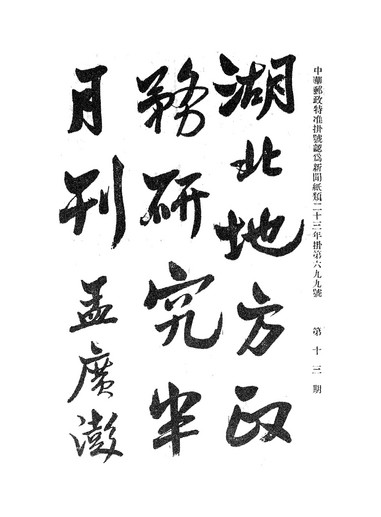 中華郵政特准掛號認爲新聞紙類二十三年掛第六九九號　第十三期
湖北地方政
務研究半
月刊　孟廣澎